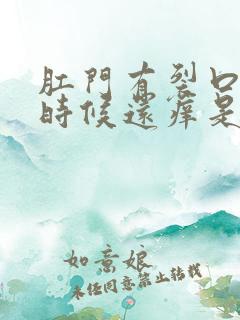 肛門有裂口
時候還癢是
如意娘
未經同意禁止轉載